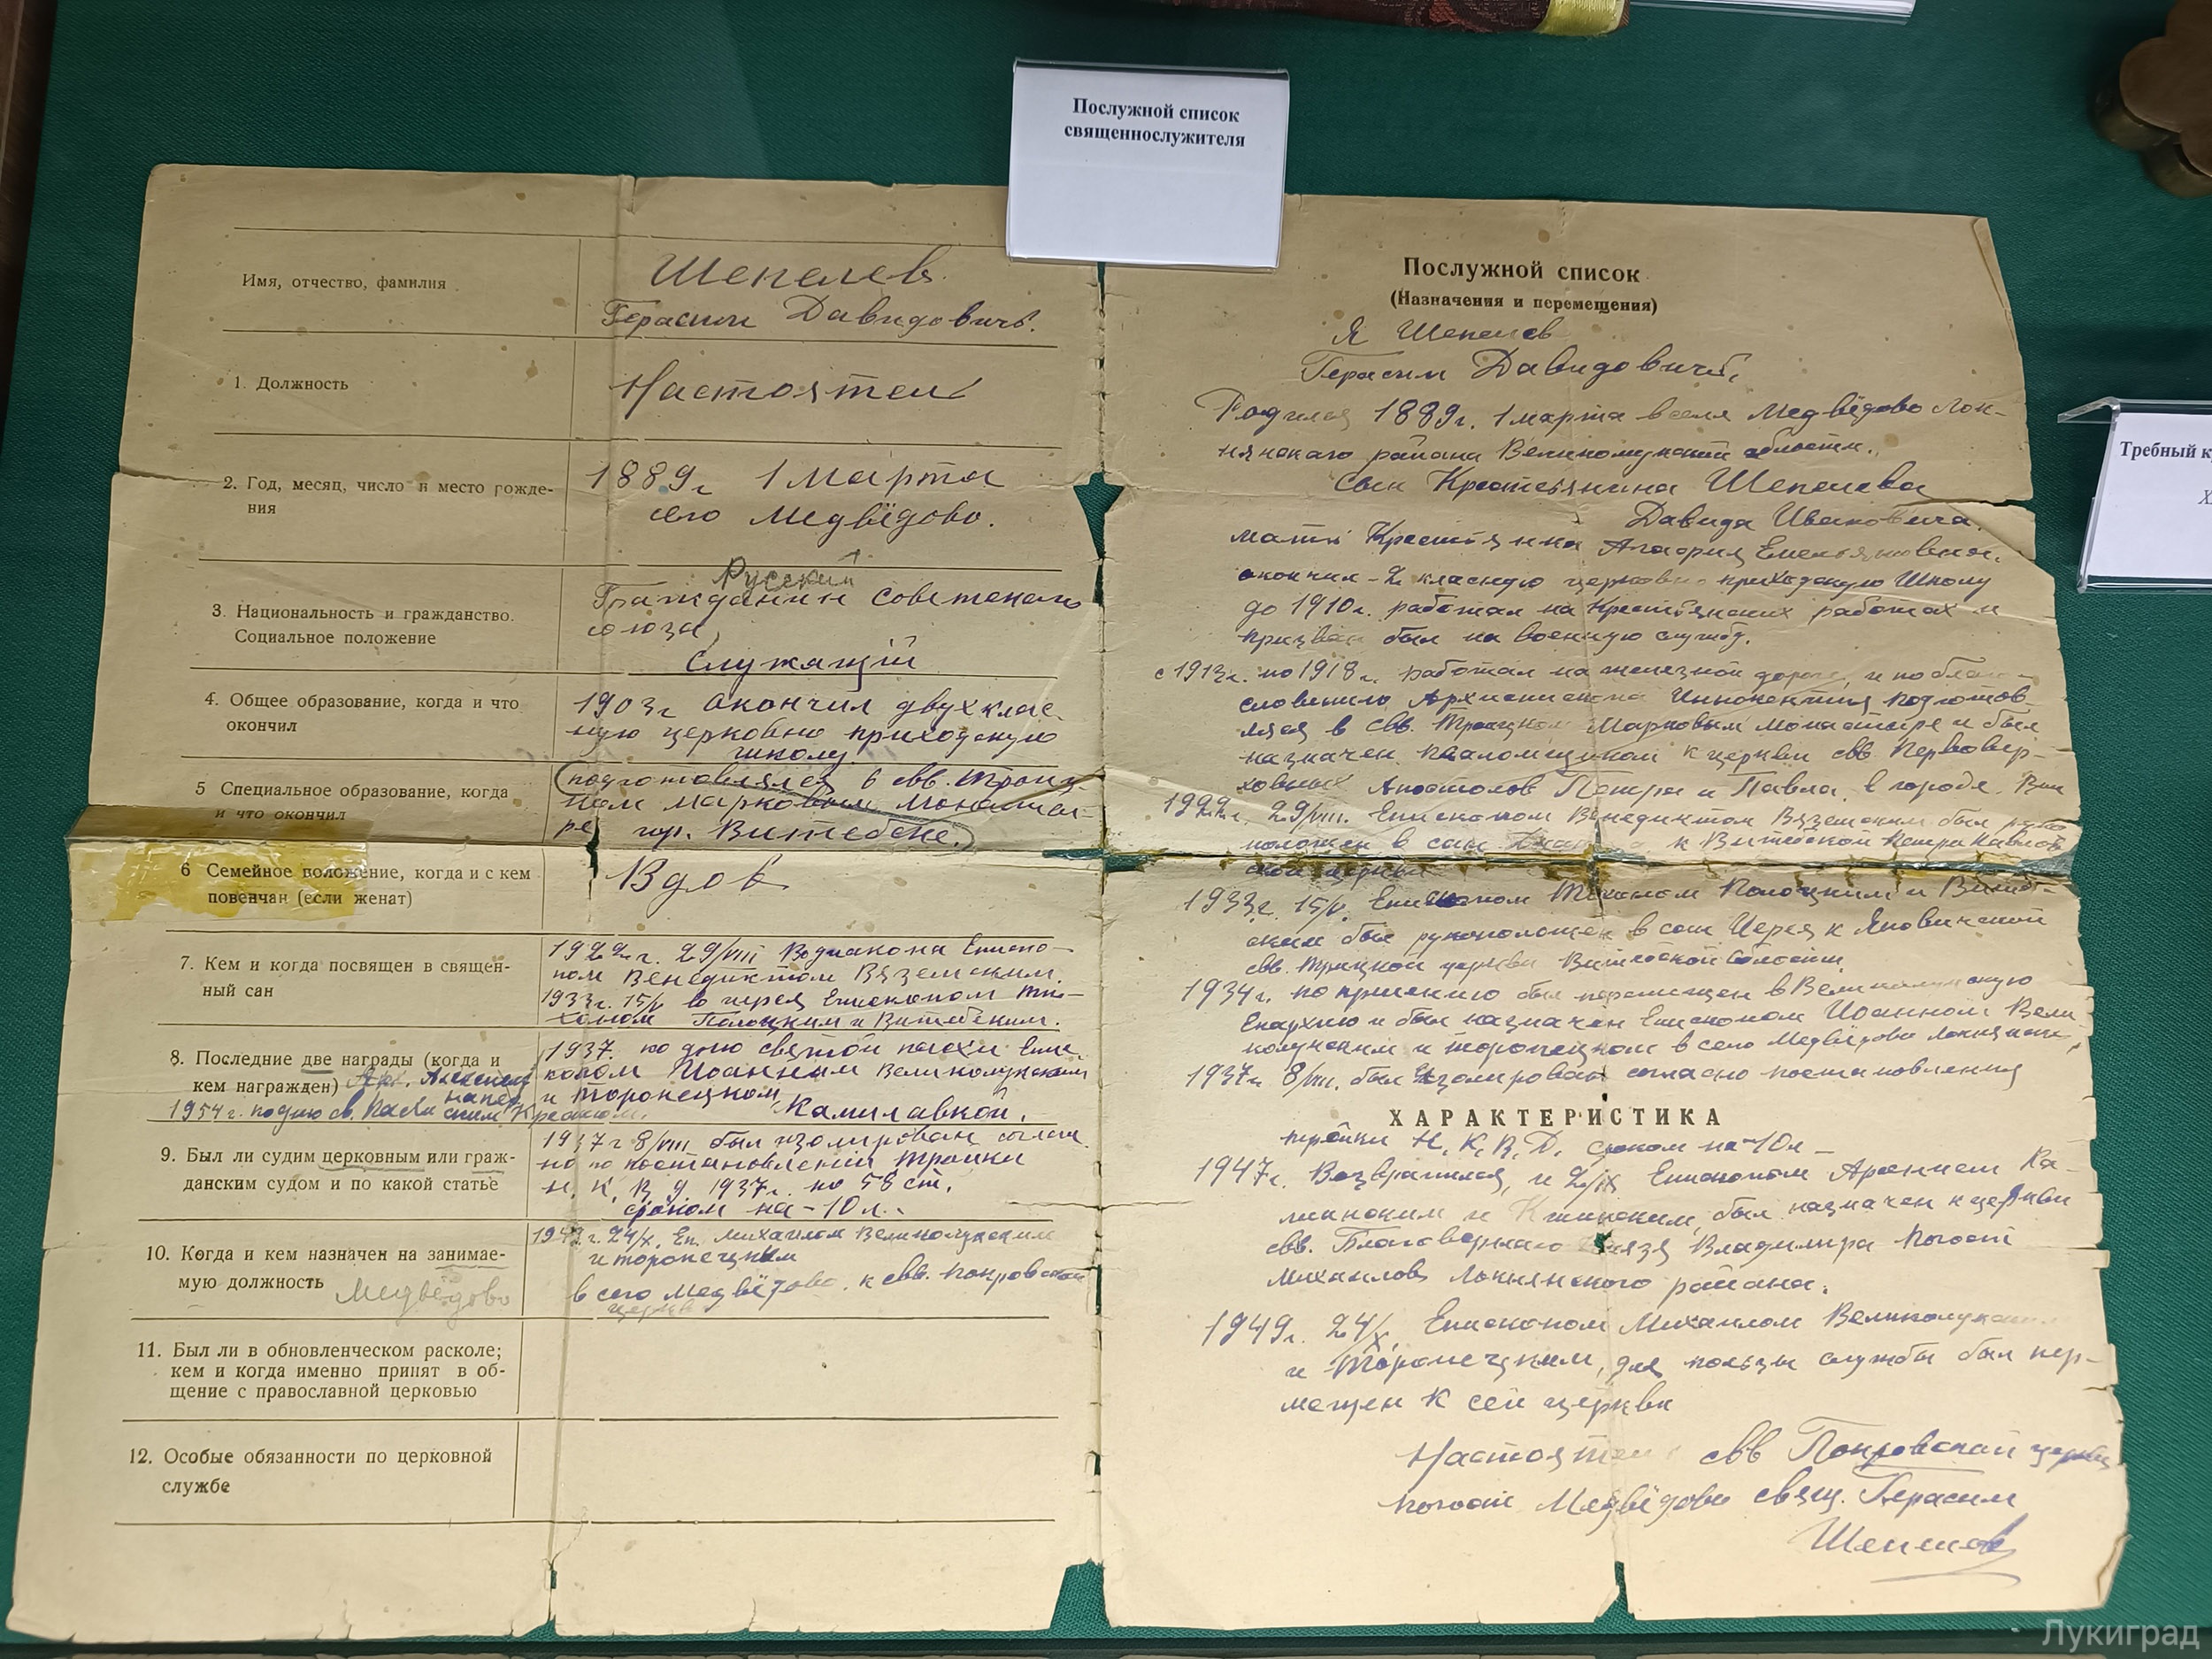 Послужной список
священнослужителя
Требный к
Имя, отчество, фамилия
Шепелев
Герасим Давидовичь.
1. Должность
Настоятель
2. Год, месяц, число и место рожде-
ния
1889г 1 марта
село Медвёдово.
3. Национальность и гражданство.
Социальное положение
Русский
Гражданин советского
союза,
Служащий
4. Общее образование, когда и что
окончил
1903г окончил двухклас-
ную церковно приходскую
школу
5 Специальное образование, когда
и что окончил
подготовлялся в свв. Троиц-
ком Марковым Монасты-
ре гор. Витебске.
6 Семейное положение, когда и с кем
повенчан (если женат)
Вдов
7. Кем и когда посвящен в священ-
ный сан
1922г. 29/VIII Водиакона Еписко-
пом Венедиктом Вяземским
1933г. 15/V во иерея Епископом Ти-
хоном Полоцким и Витебским.
8. Последние две награды (когда и
кем награжден) Арх. Александ
1954г. по дню св. Пасхи напер
сным Крестом.
1937. ко дню святой пасхи Епис-
копом Иоанным Великолукским
и Торопецком Камилавкой.
9. Был ли судим церковным или граж-
данским судом и по какой статье
1937г 8/VIII был изолирован соглас
но по постановлении тройки
Н. К. В. Д. 1937г. по 58 ст.
сроком на-10 л.
10. Когда и кем назначен на занимае-
мую должность Медвёдово
24/X. Еп. Михаилом Великолукским
и торопецким
в село Медвёдово к свв. Покровской
церкв
11. Был ли в обновленческом расколе;
кем и когда именно принят в об-
щение с православной церковью
12. Особые обязанности по церковной
службе
Послужной список
(Назначения и перемещения)
Я Шепелев
Герасим Давидовичь,
Родился 1889г. 1 марта в селя Медвёдово Лок-
нянскаго района Великолукский области.
Сын Крестьянина Шепелева
Давида Ивановича.
мать Крестьянина Агафия Емельяновна.
окончил-2 класную церковно приходскую Школу
до 1910г. работал на Крестьянских работах и
призван был на военную службу.
с 1913г. по 1918г. работал на железной дороге, и по благо-
словению Архиепископа Иннокентия подготов-
лялся в свв. Троицком Марковым монастыре и был
назначен псаломщиком к церкви свв. Первовер-
ховных Апостолов Петра и Павла в городе. Вит
1922г. 29/VIII. Епископом Венедиктом Вяземским был руко
положен в сан к Витебской Петра Павлов
ской церкви
1933г. 15/V. Епископом Тихоном Полоцким и Витеб-
ским был рукоположен в сан Иерея к Яновичской
свв. Троицкой церкви Витебской области
1934г. по прошению был перемещен в Великолукскую
Епархию и был назначен Епископом Иоанном Вели-
колукским и торопецком в село Медвёдово Локнянск
1937г 8/VIII. был Изолирован согласно постановления
ХАРАКТЕРИСТИКА
тройки Н. К. В. Д. сроком на-10 л-
1947г. Возвратился, и 2/IX Епископом Арсением Ка-
лининским и Кашинским, был назначен к церкви
свв. Благовернаго Князя Владимира погост
Михайлов Локнянского района.
1949г. 24/X, Епископом Михаилом Великолукским
и Торопецким, для пользы службы был пер-
мещен к сей церкви
Настоятель свв Покровской церкви
погост Медвёдово свящ. Герасим
Шепелев
Лукиград